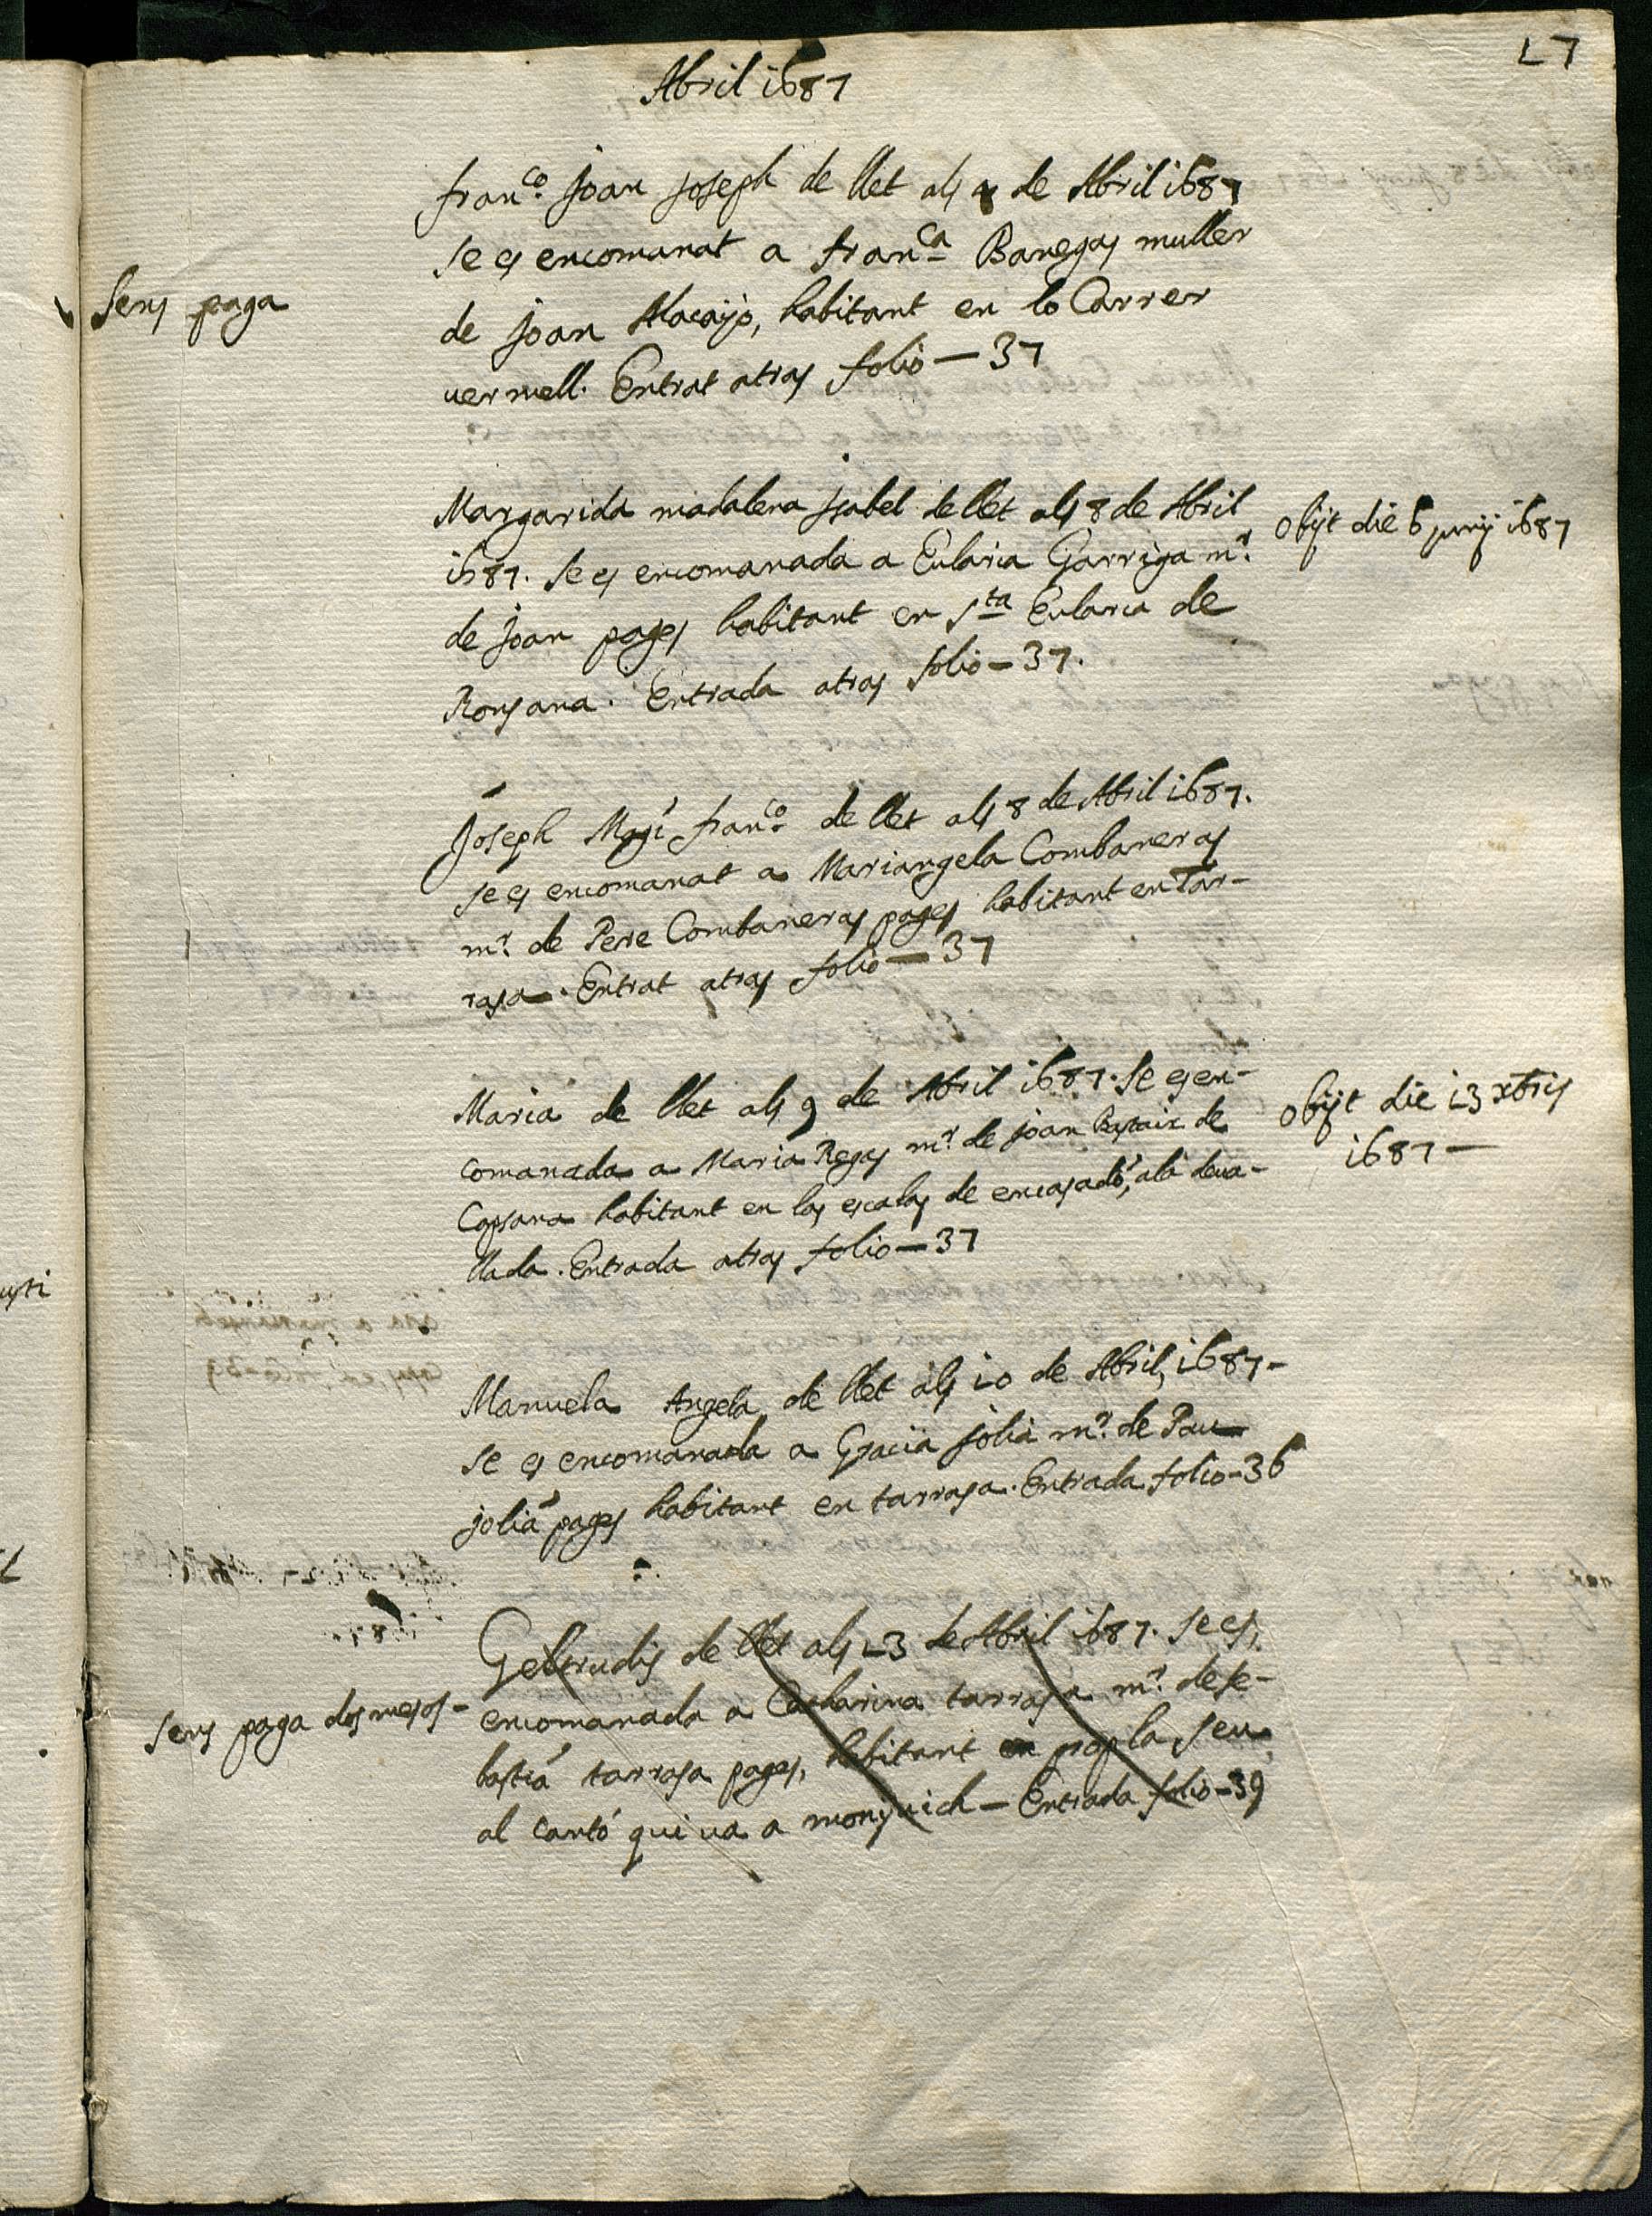 27
Abril 1687
fran.co Joan Joseph de llet als 8 de Abril 1687
se es encomanat a fran.ca Banegas muller
Sens paga
de Joan Macayo, habitant en lo Carrer
vermell. Entrat atras folio — 37
Margarida madalena Isabel de llet als 8 de Abril
obijt die 6 junij 1687
1687. Se es encomanada a Eularia Garriga m.r
de Joan pages habitant en s.ta Eularia de
Ronsana. Entrada atras folio — 37.
Joseph Magi fran.co de llet als 8 de Abril 1687.
se es encomanat a Mariangela Combaneras
m.r de Pere Combaneras pages habitant en Tar-
rasa. Entrat atras folio — 37
Maria de llet als 9 de Abril 1687. Se es en-
obijt die 13 xbris
1687 —
comanada a Maria Regas m.r de Joan Bastaix de
Capsana habitant en las escalas de encasadó, a la deva-
llada. Entrada atras folio — 37
Manuela Angela de llet als 10 de Abril, 1687 -
se es encomanada a Gracia Joliá m.r de Pau
joliá pages habitant en tarrasa. Entrada folio - 36
Geltrudis de llet als 23 de Abril 1687. se es,
encomanada a Catharina tarrasa m.r de se-
Sens paga dos mesos -
bastiá tarrasa pages, habitant en prop la seu
al cantó qui va a monjuich — Entrada folio - 39